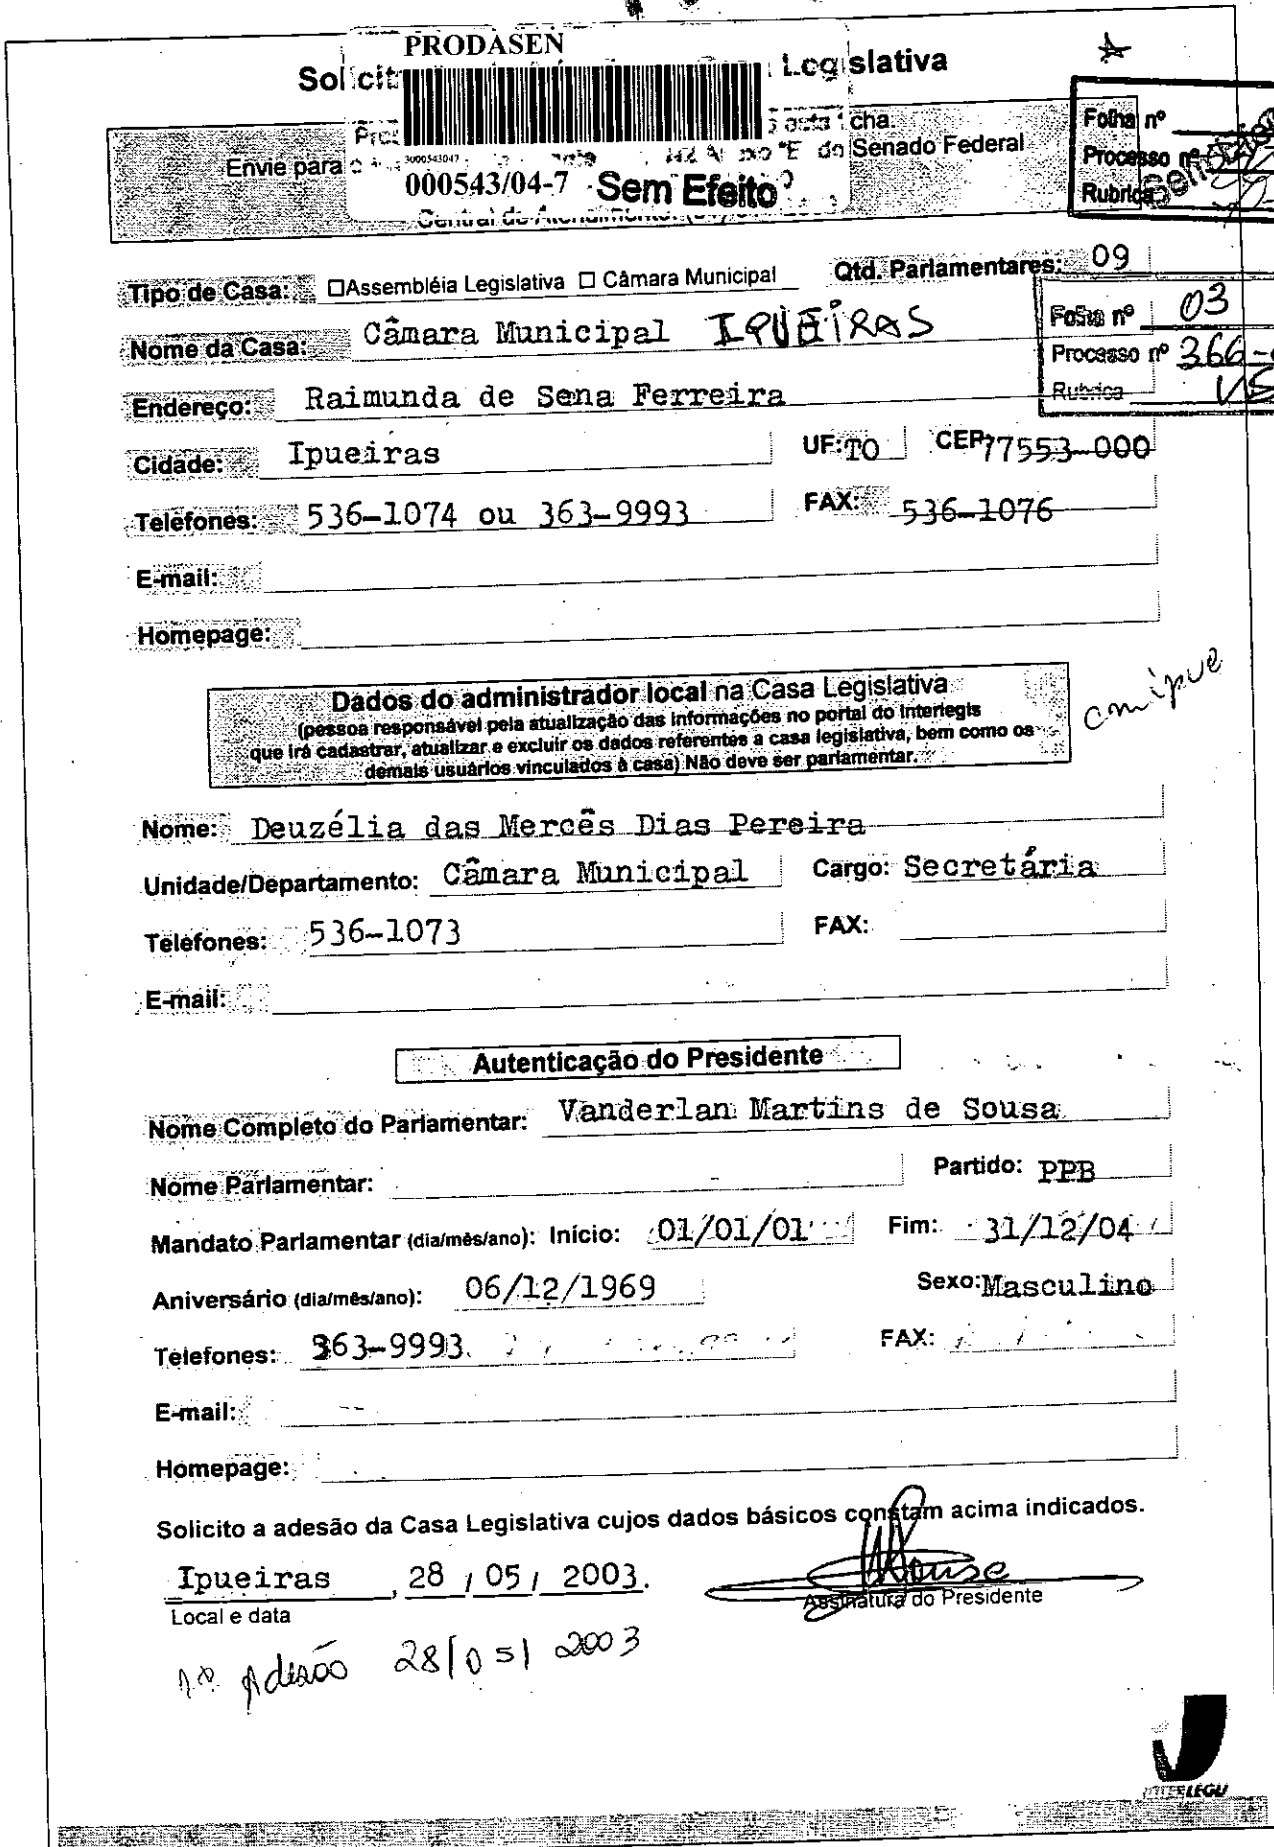 PRODASEN
Solicit Legislativa
esta ficha.
Envie para do Senado Federal
3000543047
000543/04-7 Sem Efeito
Central de Atendimento:
Folha nº
Processo nº
Rubrica
Tipo de Casa: □Assembléia Legislativa □ Câmara Municipal Qtd. Parlamentares: 09
Folha nº 03
Processo nº 366-
Rubrica
Nome da Casa: Câmara Municipal IPUEIRAS
Endereço: Raimunda de Sena Ferreira
Cidade: Ipueiras UF:TO CEP77553-000
Telefones: 536-1074 ou 363-9993 FAX: 536-1076
E-mail:
Homepage:
cmipue
Dados do administrador local na Casa Legislativa
(pessoa responsável pela atualização das informações no portal do Interlegis
que irá cadastrar, atualizar e excluir os dados referentes a casa legislativa, bem como os
demais usuários vinculados à casa) Não deve ser parlamentar.
Nome: Deuzélia das Mercês Dias Pereira
Unidade/Departamento: Câmara Municipal Cargo: Secretária
Telefones: 536-1073 FAX:
E-mail:
Autenticação do Presidente
Nome Completo do Parlamentar: Vanderlan Martins de Sousa
Nome Parlamentar: Partido: PPB
Mandato Parlamentar (dia/mês/ano): Início: 01/01/01 Fim: 31/12/04
Aniversário (dia/mês/ano): 06/12/1969 Sexo:Masculino
Telefones: 363-9993. FAX:
E-mail:
Homepage:
Solicito a adesão da Casa Legislativa cujos dados básicos constam acima indicados.
Ipueiras , 28 / 05 / 2003.
Local e data
Assinatura do Presidente
1ª Adesão 28/05/2003
INTERLEGIS